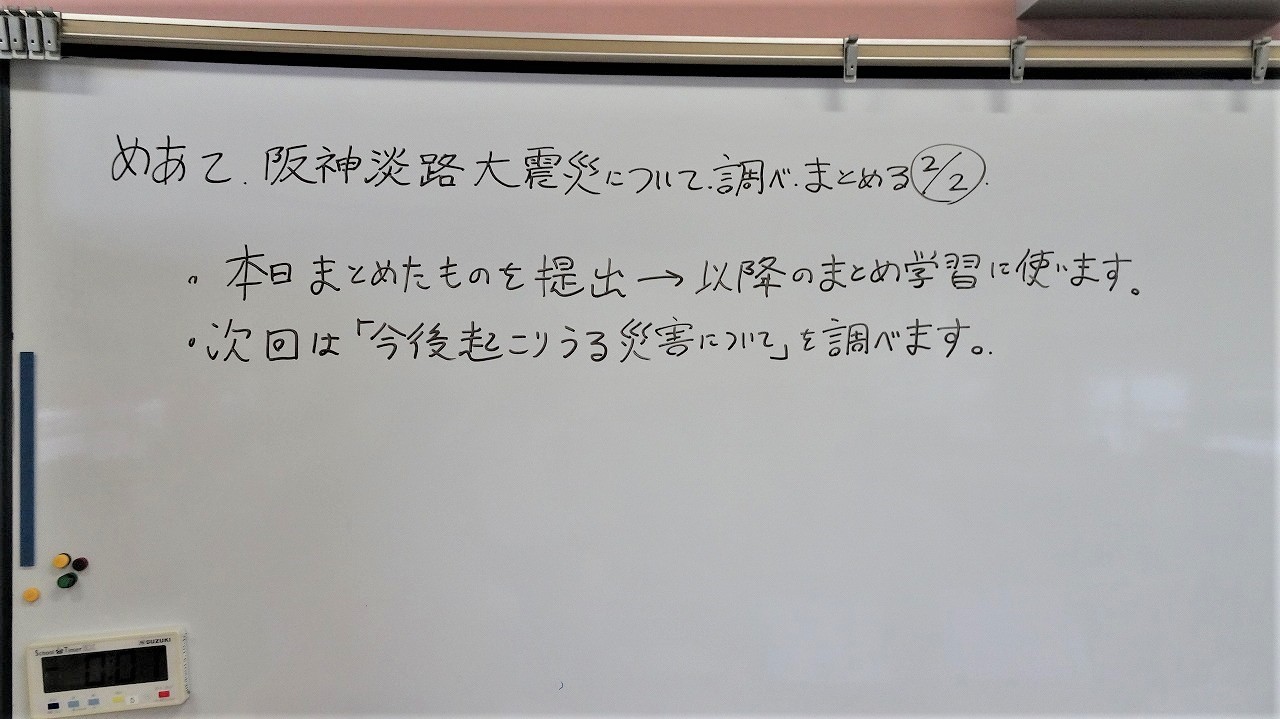 めあて. 阪神淡路大震災について.調べ.まとめる 2/2.
・本日まとめたものを提出→以降のまとめ学習に使います。
・次回は「今後起こりうる災害について」を調べます。
SUZUKI
School Timer